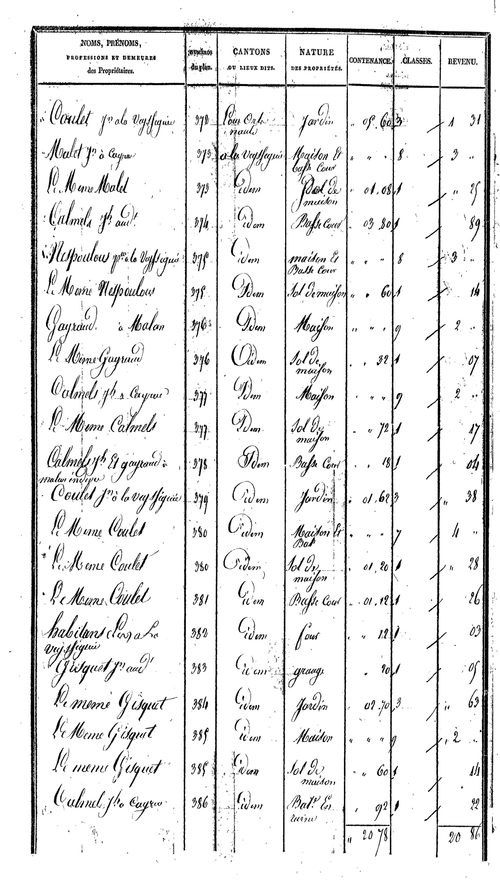 NOMS, PRÉNOMS, PROFESSIONS ET DEMEURES des Propriétaires. du plan. CANTONS OU LIEUX DITS. NATURE DES PROPRIÉTÉS. CONTENANCE. CLASSES. REVENU.
Coulet Jn a la Veyssiguie 372 Jardin 05 60 3 1 31
Malet Jn à Cayrac 373 a la Veyssiguie Maison Et Basse Cour " " 8 3 "
Le Meme Malet 373 idem Sol de maison 01 08 1 " 25
Calmels Jh audt 374 idem Basse Cour 03 80 1 89
Nespoulous a la Veyssiguie 375 idem maison Et Basse Cour " " 8 3 "
Le Meme Nespoulous 375 Idem Sol de maison " 60 1 14
Gayraud à Malan 376 Idem Maison " " 9 2 "
Le Meme Gayraud 376 Idem Sol de maison " 32 1 07
Calmels Jh a Cayrac 377 Idem Maison " " 9 2 "
Le Meme Calmels 377 Idem Sol de maison " 72 1 17
Calmels Jh Et gayraud à malan 378 Idem Basse Cour " 18 1 04
Coulet Jn à la Veyssiguie 379 idem Jardin 01 62 3 " 38
Le Meme Coulet 380 idem Maison Et Bat " " 7 4 "
Le Meme Coulet 380 idem Sol de maison 01 20 1 " 28
Le Meme Coulet 381 idem Basse Cour 01 12 1 26
habitans de la Veyssiguie 382 idem four " 12 1 03
Gisquet Jn audt 383 idem grange " 20 1 05
Le meme Gisquet 384 idem Jardin 02 70 3 " 63
Le Meme Gisquet 385 idem Maison " " 9 " 2 "
Le meme Gisquet 385 idem Sol de maison " 60 1 14
Calmel Jh à Cayrac 386 idem Batt En ruine " 92 1 22
" 20 78 20 86